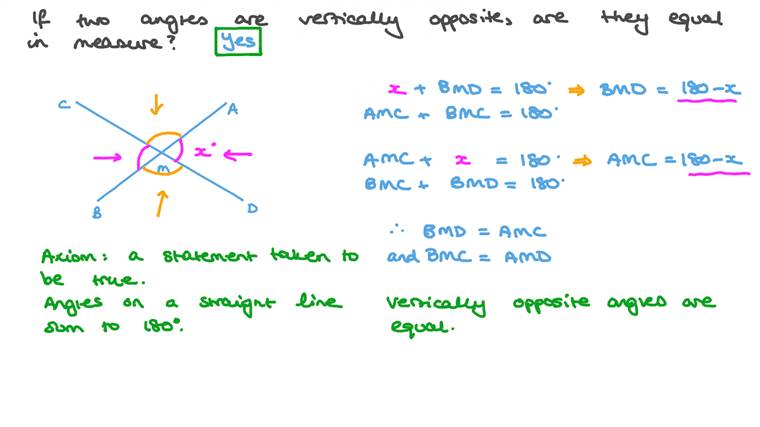 If two angles are vertically opposite, are they equal
in measure? Yes
C
A
x°
m
B
D
x + BMD = 180° ⇒ BMD = 180 - x
AMC + BMC = 180°
AMC + x = 180° ⇒ AMC = 180 - x
BMC + BMD = 180°
∴ BMD = AMC
and BMC = AMD
Axiom: a statement taken to
be true.
Angles on a straight line
sum to 180°.
Vertically opposite angles are
equal.